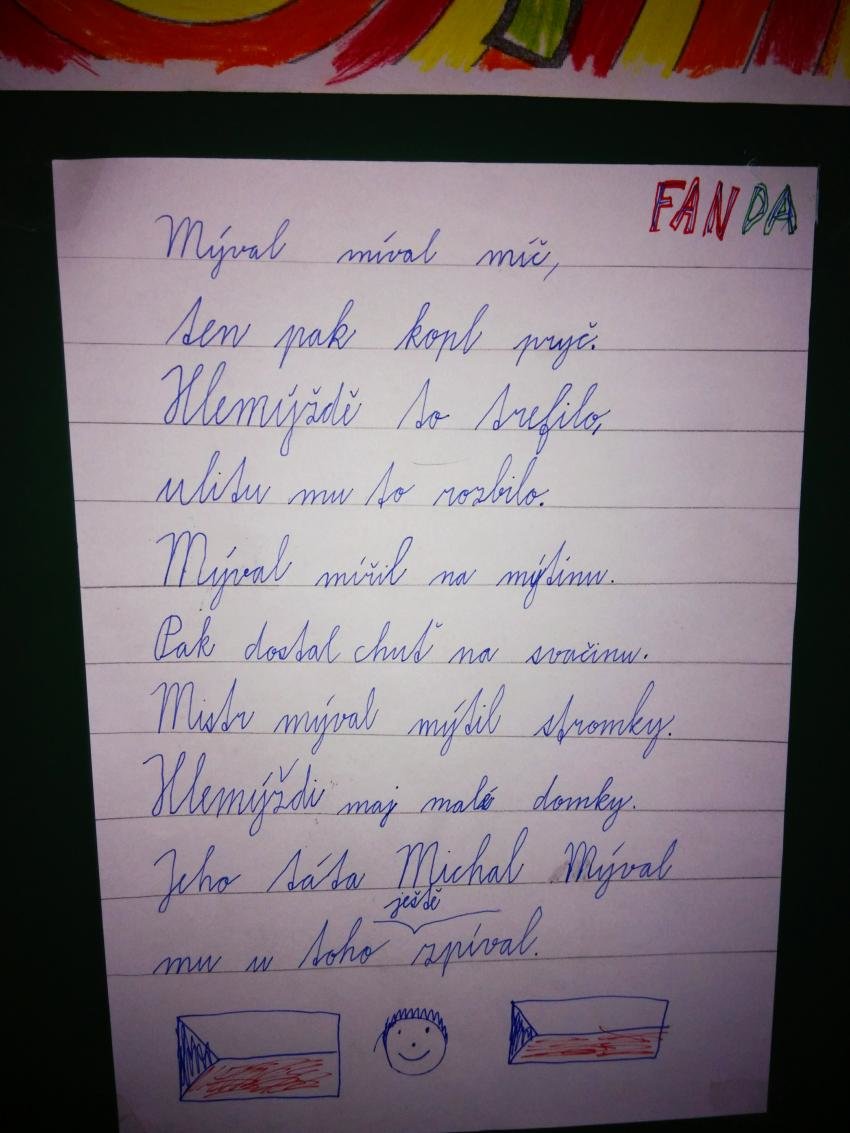 FANDA
Mýval míval míč,
ten pak kopl pryč.
Hlemýždě to trefilo,
ulitu mu to rozbilo.
Mýval mířil na mýtinu.
Pak dostal chuť na svačinu.
Mistr mýval mýtil stromky.
Hlemýždi maj malé domky.
Jeho táta Michal Mýval
ještě
mu u toho zpíval.